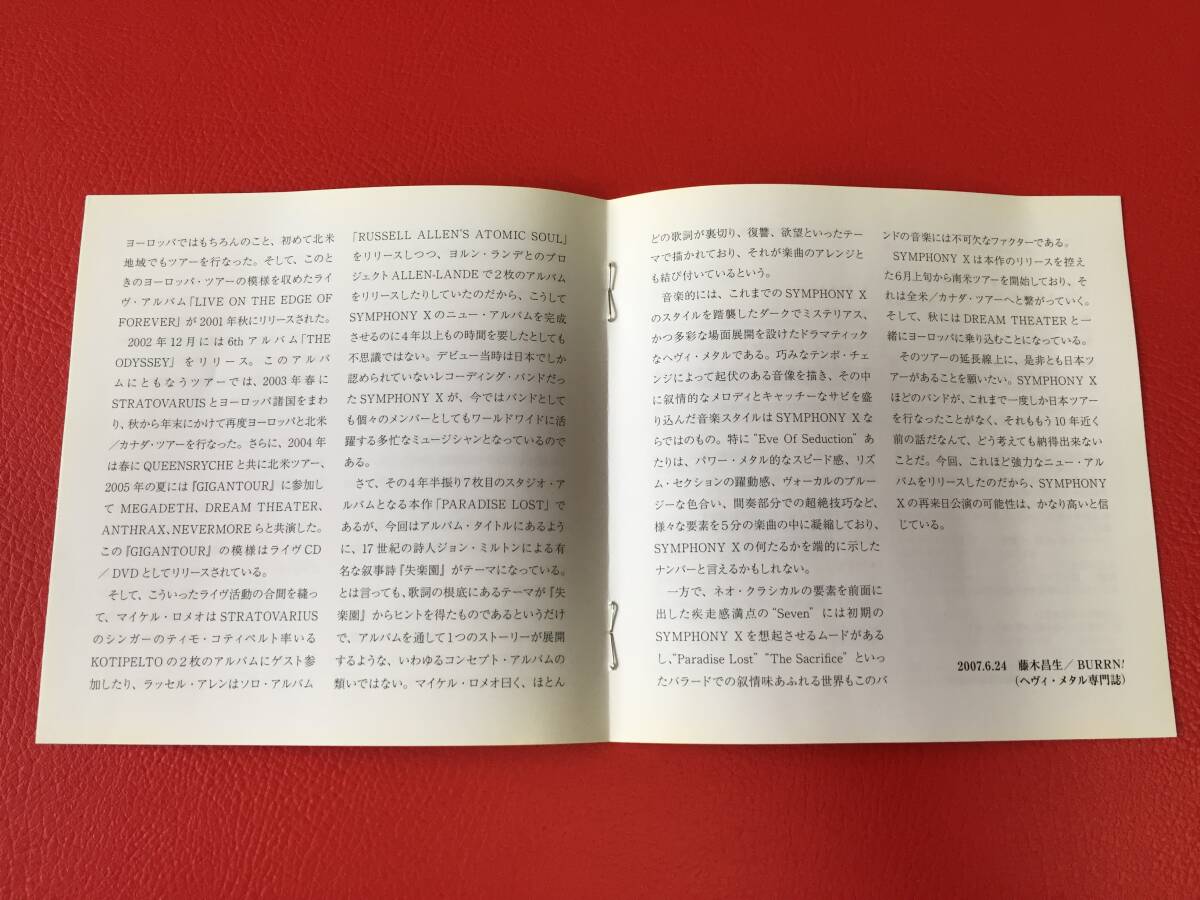 ヨーロッパではもちろんのこと、初めて北米
地域でもツアーを行なった。そして、このと
きのヨーロッパ・ツアーの模様を収めたライ
ヴ・アルバム「LIVE ON THE EDGE OF
FOREVER」が2001年秋にリリースされた。
2002年12月には6thアルバム「THE
ODYSSEY」をリリース。このアルバ
ムにともなうツアーでは、2003年春に
STRATOVARUISとヨーロッパ諸国をまわ
り、秋から年末にかけて再度ヨーロッパと北米
/カナダ・ツアーを行なった。さらに、2004年
は春にQUEENSRYCHEと共に北米ツアー、
2005年の夏には『GIGANTOUR』に参加し
てMEGADETH, DREAM THEATER,
ANTHRAX, NEVERMOREらと共演した。
この『GIGANTOUR』の模様はライヴCD
/DVDとしてリリースされている。
そして、こういったライヴ活動の合間を縫っ
て、マイケル・ロメオはSTRATOVARIUS
のシンガーのティモ・コティペルト率いる
KOTIPELTOの2枚のアルバムにゲスト参
加したり、ラッセル・アレンはソロ・アルバム
「RUSSELL ALLEN'S ATOMIC SOUL」
をリリースしつつ、ヨルン・ランデとのプロ
ジェクトALLEN-LANDEで2枚のアルバム
をリリースしたりしていたのだから、こうして
SYMPHONY Xのニュー・アルバムを完成
させるのに4年以上もの時間を要したとしても
不思議ではない。デビュー当時は日本でしか
認められていないレコーディング・バンドだっ
たSYMPHONY Xが、今ではバンドとして
も個々のメンバーとしてもワールドワイドに活
躍する多忙なミュージシャンとなっているので
ある。
さて、その4年半振り7枚目のスタジオ・ア
ルバムとなる本作「PARADISE LOST」で
あるが、今回はアルバム・タイトルにあるよう
に、17世紀の詩人ジョン・ミルトンによる有
名な叙事詩『失楽園』がテーマになっている。
とは言っても、歌詞の根底にあるテーマが『失
楽園』からヒントを得たものであるというだけ
で、アルバムを通して1つのストーリーが展開
するような、いわゆるコンセプト・アルバムの
類いではない。マイケル・ロメオ曰く、ほとん
どの歌詞が裏切り、復讐、欲望といったテー
マで描かれており、それが楽曲のアレンジと
も結び付いているという。
音楽的には、これまでのSYMPHONY X
のスタイルを踏襲したダークでミステリアス、
かつ多彩な場面展開を設けたドラマティック
なヘヴィ・メタルである。巧みなテンポ・チェ
ンジによって起伏のある音像を描き、その中
に叙情的なメロディとキャッチーなサビを盛
り込んだ音楽スタイルはSYMPHONY Xな
らではのもの。特に“Eve Of Seduction”あ
たりは、パワー・メタル的なスピード感、リズ
ム・セクションの躍動感、ヴォーカルのブルー
ジーな色合い、間奏部分での超絶技巧など、
様々な要素を5分の楽曲の中に凝縮しており、
SYMPHONY Xの何たるかを端的に示した
ナンバーと言えるかもしれない。
一方で、ネオ・クラシカルの要素を前面に
出した疾走感満点の“Seven”には初期の
SYMPHONY Xを想起させるムードがある
し、“Paradise Lost”“The Sacrifice”といっ
たバラードでの叙情味あふれる世界もこのバ
ンドの音楽には不可欠なファクターである。
SYMPHONY Xは本作のリリースを控え
た6月上旬から南米ツアーを開始しており、そ
れは全米/カナダ・ツアーへと繋がっていく。
そして、秋にはDREAM THEATERと一
緒にヨーロッパに乗り込むことになっている。
そのツアーの延長線上に、是非とも日本ツ
アーがあることを願いたい。SYMPHONY X
ほどのバンドが、これまで一度しか日本ツアー
を行なったことがなく、それももう10年近く
前の話だなんて、どう考えても納得出来ない
ことだ。今回、これほど強力なニュー・アル
バムをリリースしたのだから、SYMPHONY
Xの再来日公演の可能性は、かなり高いと信
じている。
2007.6.24 藤木昌生/BURRN!
(ヘヴィ・メタル専門誌)